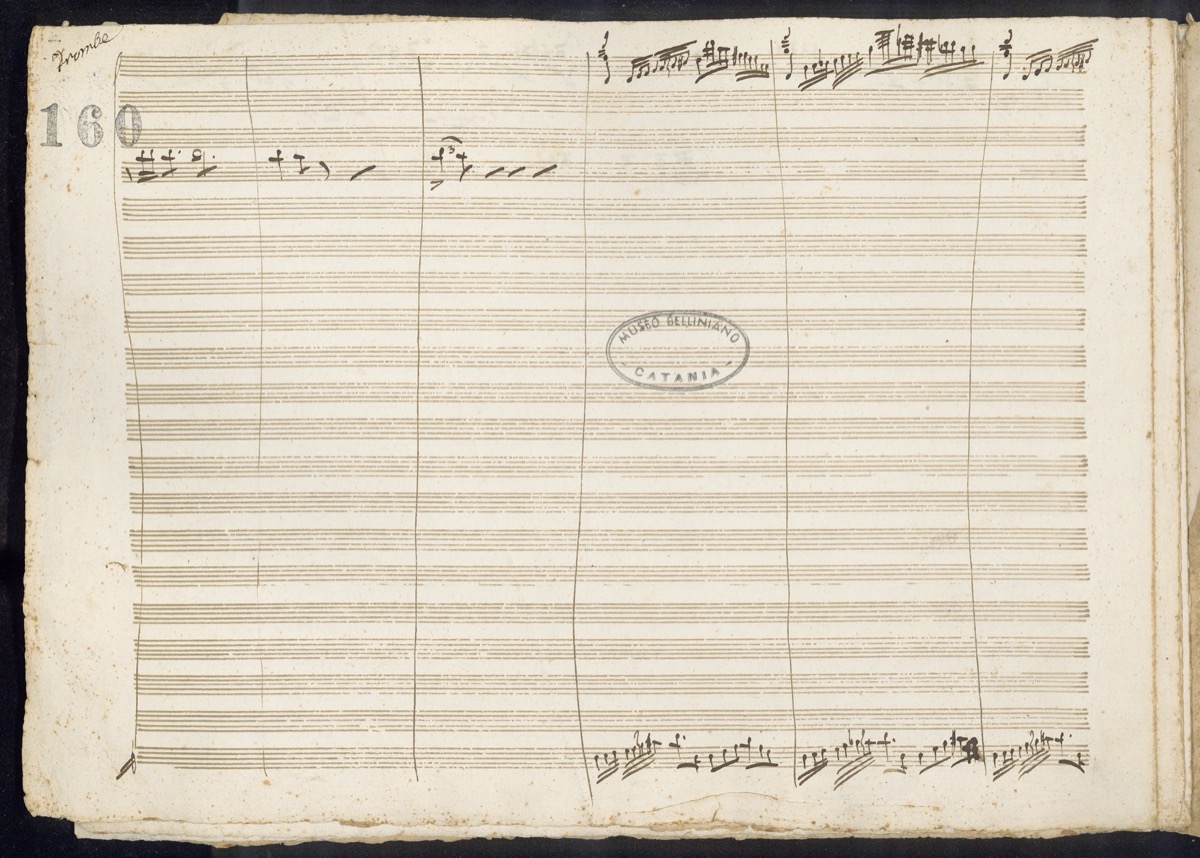 Trombe
160
MUSEO BELLINIANO
CATANIA